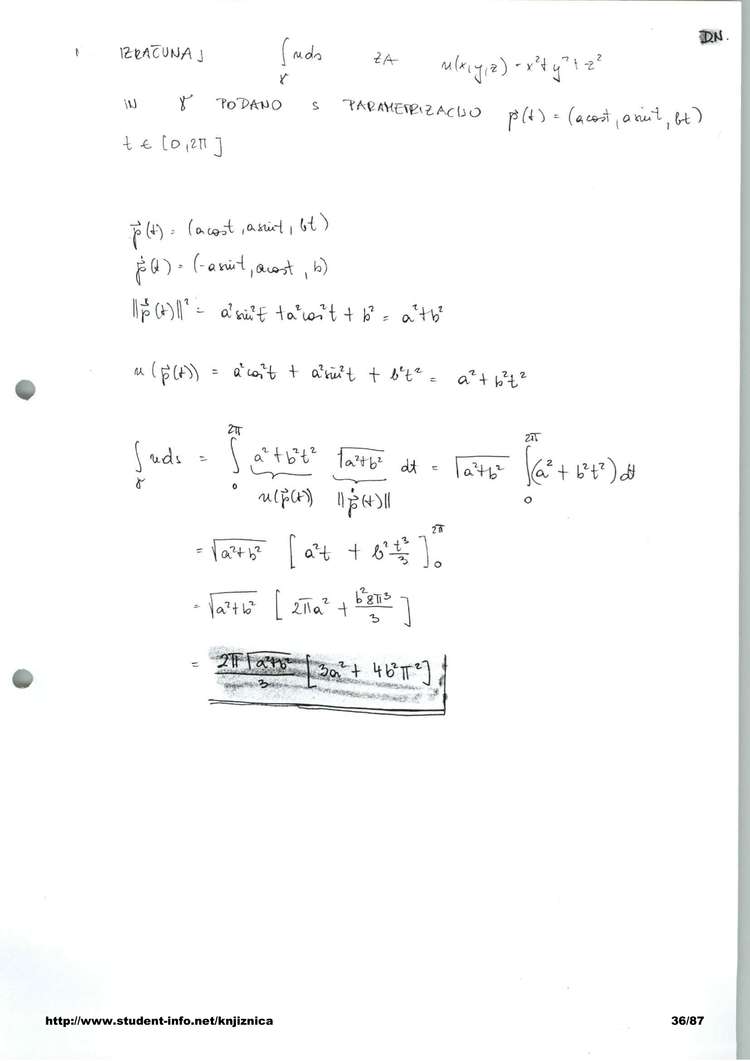 DN.
1 IZRAČUNAJ ∫_γ uds ZA u(x,y,z) = x²+y²+z²
IN γ PODANO S PARAMETRIZACIJO p⃗(t) = (acost, asint, bt)
t ∈ [0,2π]
p⃗(t) = (acost, asint, bt)
p⃗̇(t) = (-asint, acost, b)
||p⃗̇(t)||² = a²sin²t + a²cos²t + b² = a²+b²
u(p⃗(t)) = a²cos²t + a²sin²t + b²t² = a² + b²t²
∫_γ uds = ∫_0^{2π} a²+b²t² √(a²+b²) dt = √(a²+b²) ∫_0^{2π} (a² + b²t²) dt
u(p⃗(t)) ||p⃗̇(t)||
= √(a²+b²) [a²t + b² t³/3]_0^{2π}
= √(a²+b²) [2πa² + b²8π³/3]
= 2π√(a²+b²)/3 [3a² + 4b²π²]
http://www.student-info.net/knjiznica 36/87